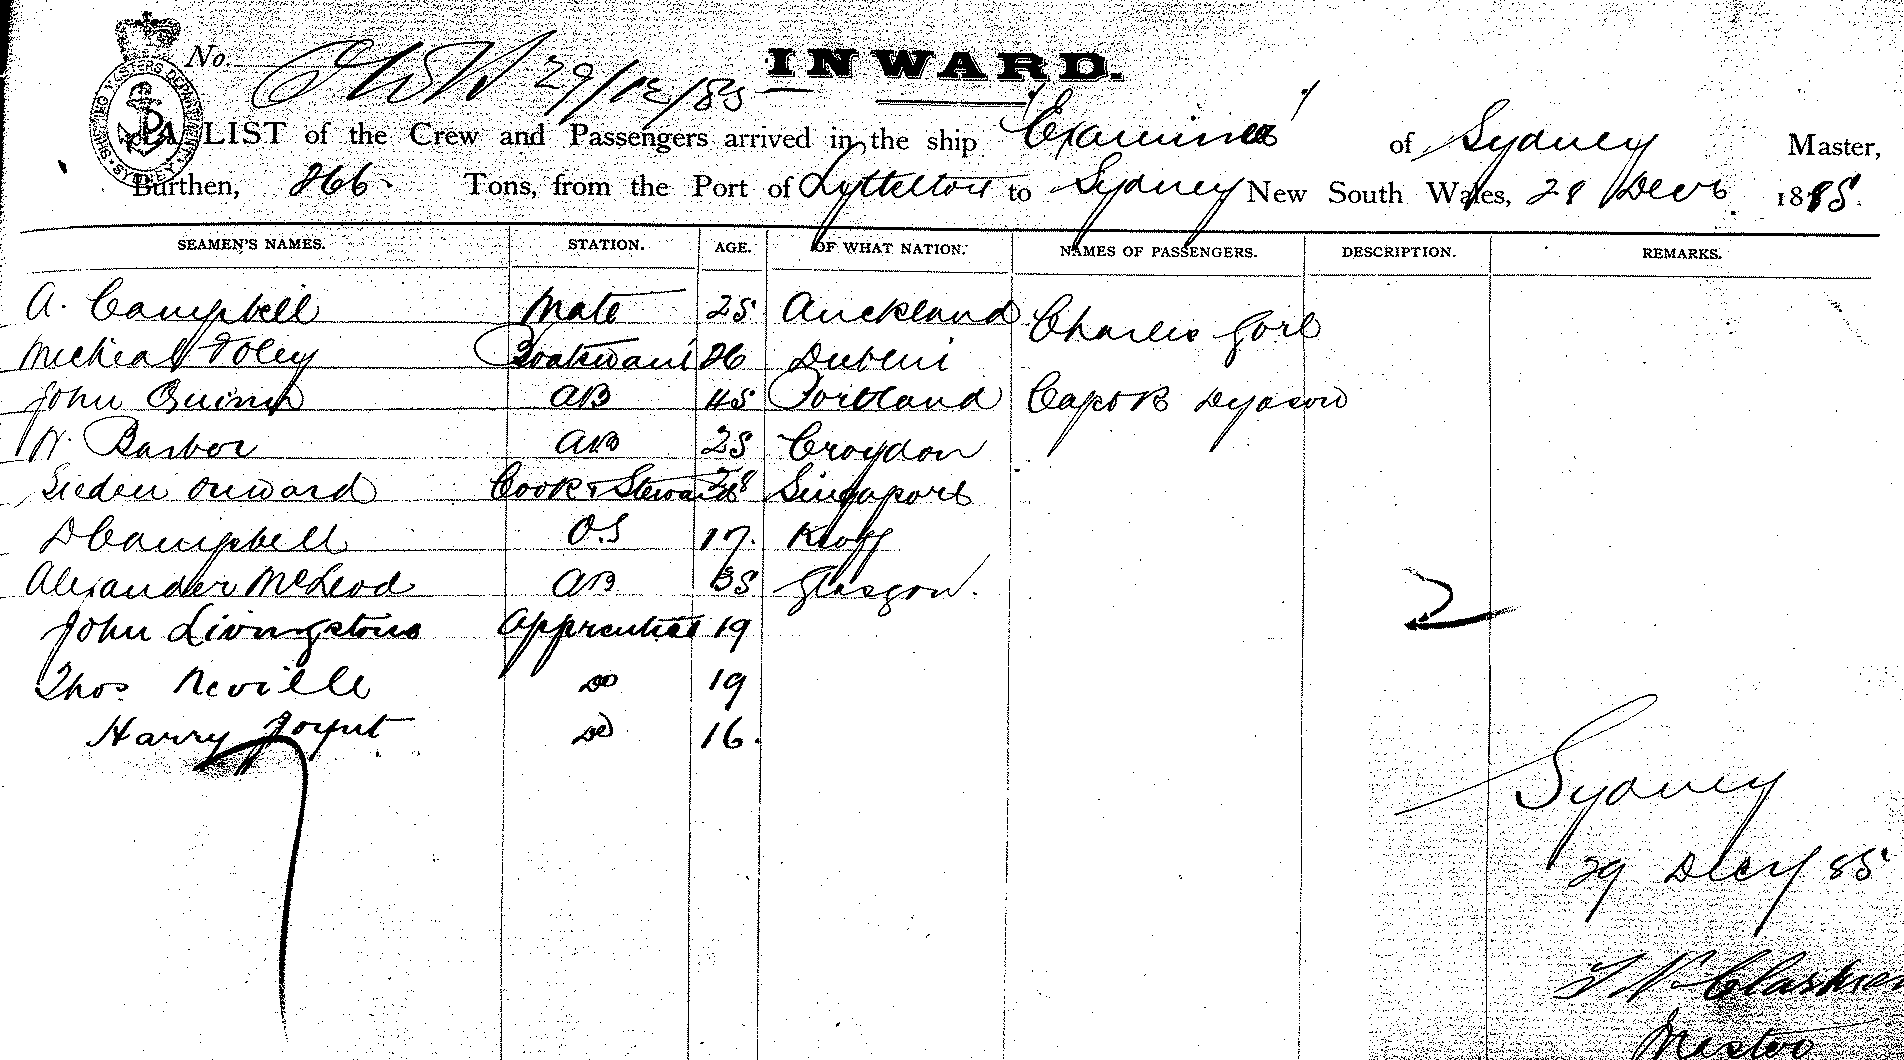 No. 29/12/85 INWARD.
SHIPPING MASTERS DEPARTMENT SYDNEY
A LIST of the Crew and Passengers arrived in the ship "Examiner" of Sydney Master,
Burthen, 266 Tons, from the Port of Lyttelton to Sydney New South Wales, 28 Decr 1885.
SEAMEN'S NAMES. STATION. AGE. OF WHAT NATION. NAMES OF PASSENGERS. DESCRIPTION. REMARKS.
A. Campbell Mate 25 Auckland Charles
Micheal Foley Boatswain 26 Dublin
John Quinn AB 45 Portland Capt B Dyason
W. Barber AB 25 Croydon
Onward Cook & Steward 28 Singapore
D Campbell O.S 17.
Alexander McLeod AB 35 Glasgow.
John Livingstone Apprentice 19
2
Thos Neville Do 19
Harry Joynt Do 16.
Sydney
29 Decr 85
Clarkson
Master